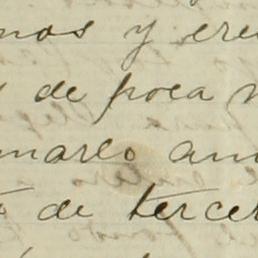 nos y cre
de poca
marlo am
de tercer